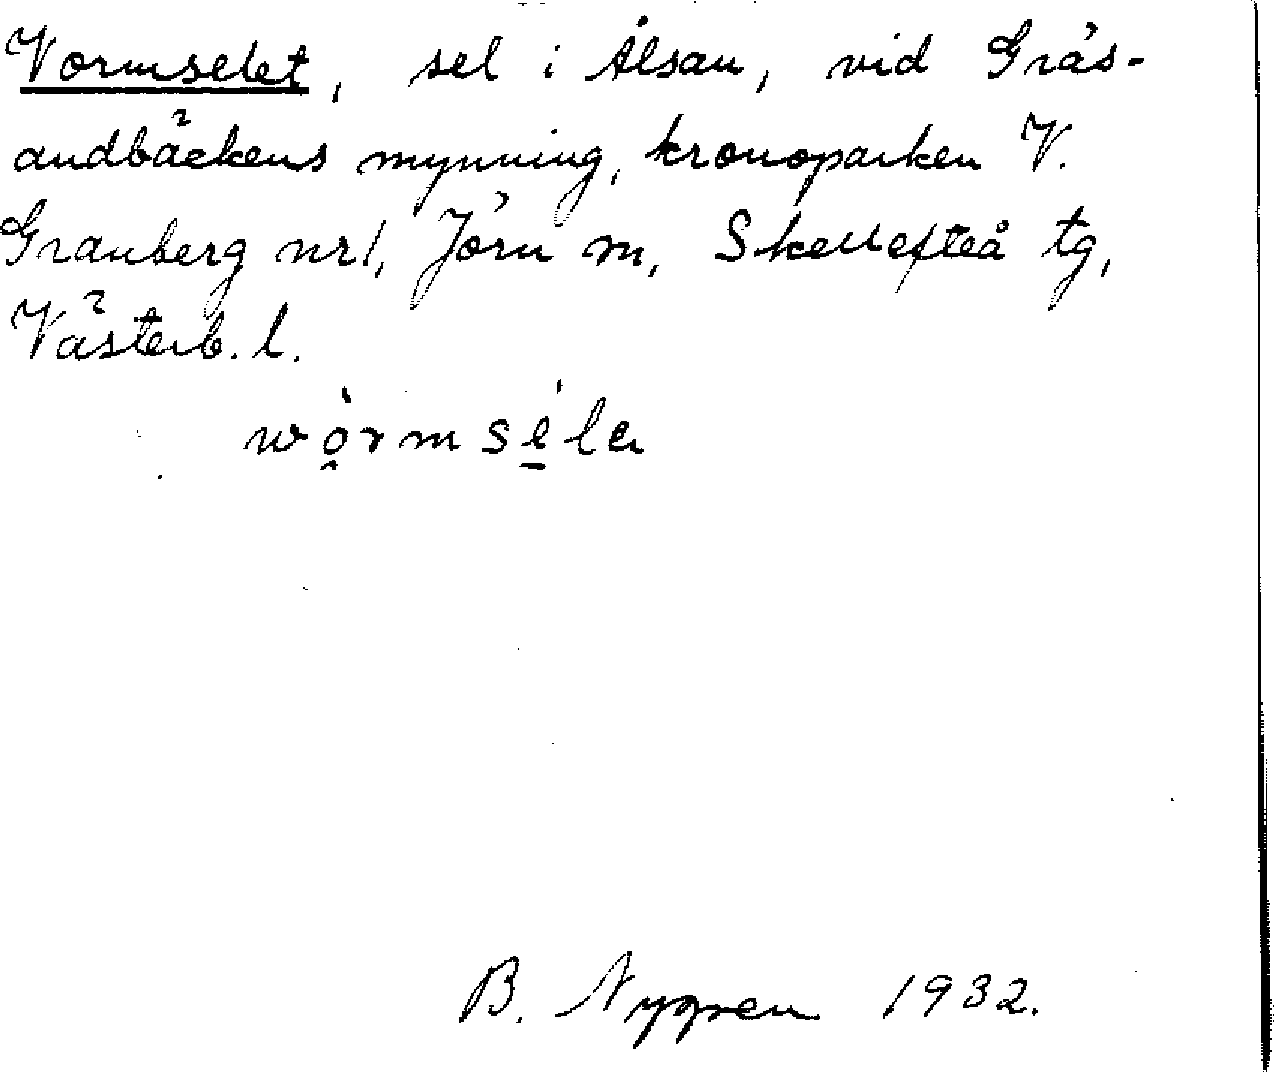 Vormselet, sel i Ålsån, vid Gräs-
andbäckens mynning, kronoparken V.
Granberg nr 1, Jörn m, Skellefteå tg,
Västerb. l.
wo̤rmse̱la
B. Nygren 1932.